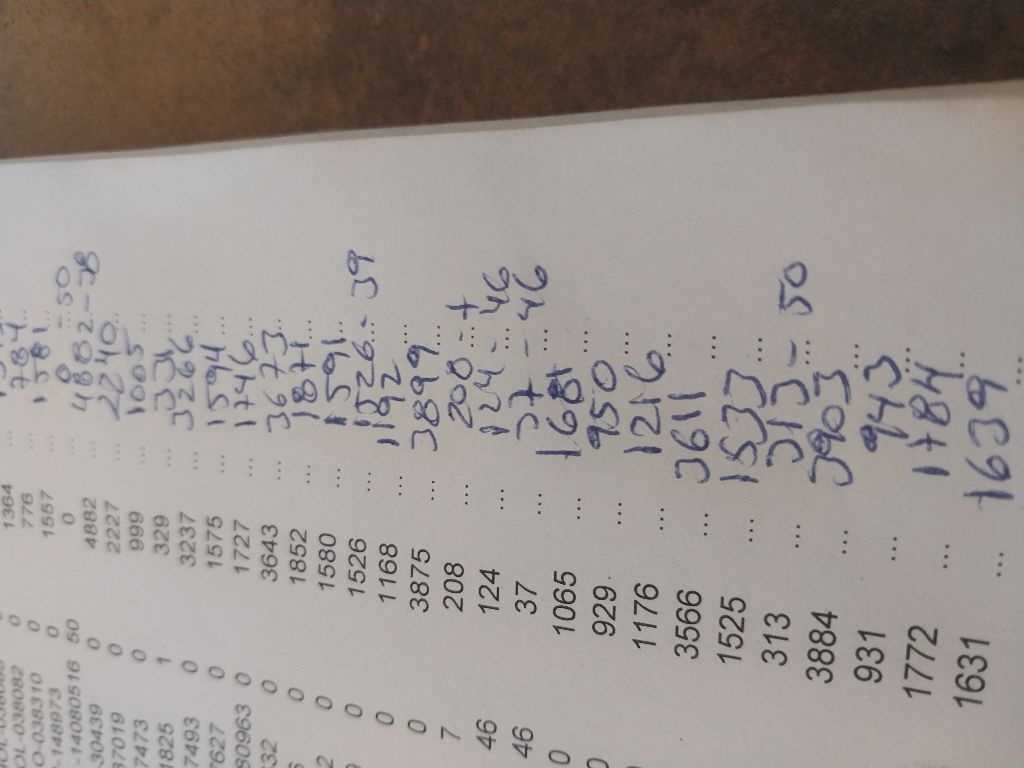 OL-038082 0 1364 ...
O-038310 0 776 ... 784 ...
-148973 0 1557 ... 1581 ...
-14080516 50 0 ... 0 - 50
30439 0 4882 ... 4882 - 38
37019 0 2227 ... 2240 ...
7473 0 999 ... 1005 ...
1825 1 329 ... ...
7493 0 3237 ... 3266 ...
7627 0 1575 ... 1594 ...
80963 0 1727 ... 1746 ...
332 0 3643 ... 3673 ...
0 1852 ... 1871 ...
2 0 1580 ... 1591 ...
0 1526 ... 1526 - 39
0 1168 ... 1192 ...
0 3875 ... 3899 ...
7 208 ... 208 - 7
46 124 ... 124 - 46
46 37 ... 37 - 46
0 1065 ... ...
0 929 ... 950 ...
1176 ... 1216 ...
3566 ... 3611 ...
1525 ... 1533 ...
313 ... 313 - 50
3884 ... 3903 ...
931 ... 943 ...
1772 ... 1784 ...
1631 ... 1639 ...